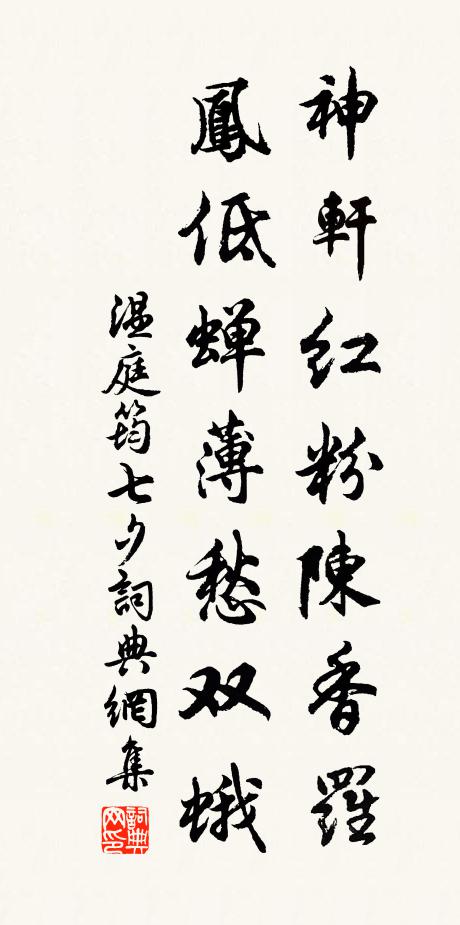 神軒紅粉陳香羅
鳳低蝉薄愁双蛾
温庭筠七夕詞典網集
詞典网印